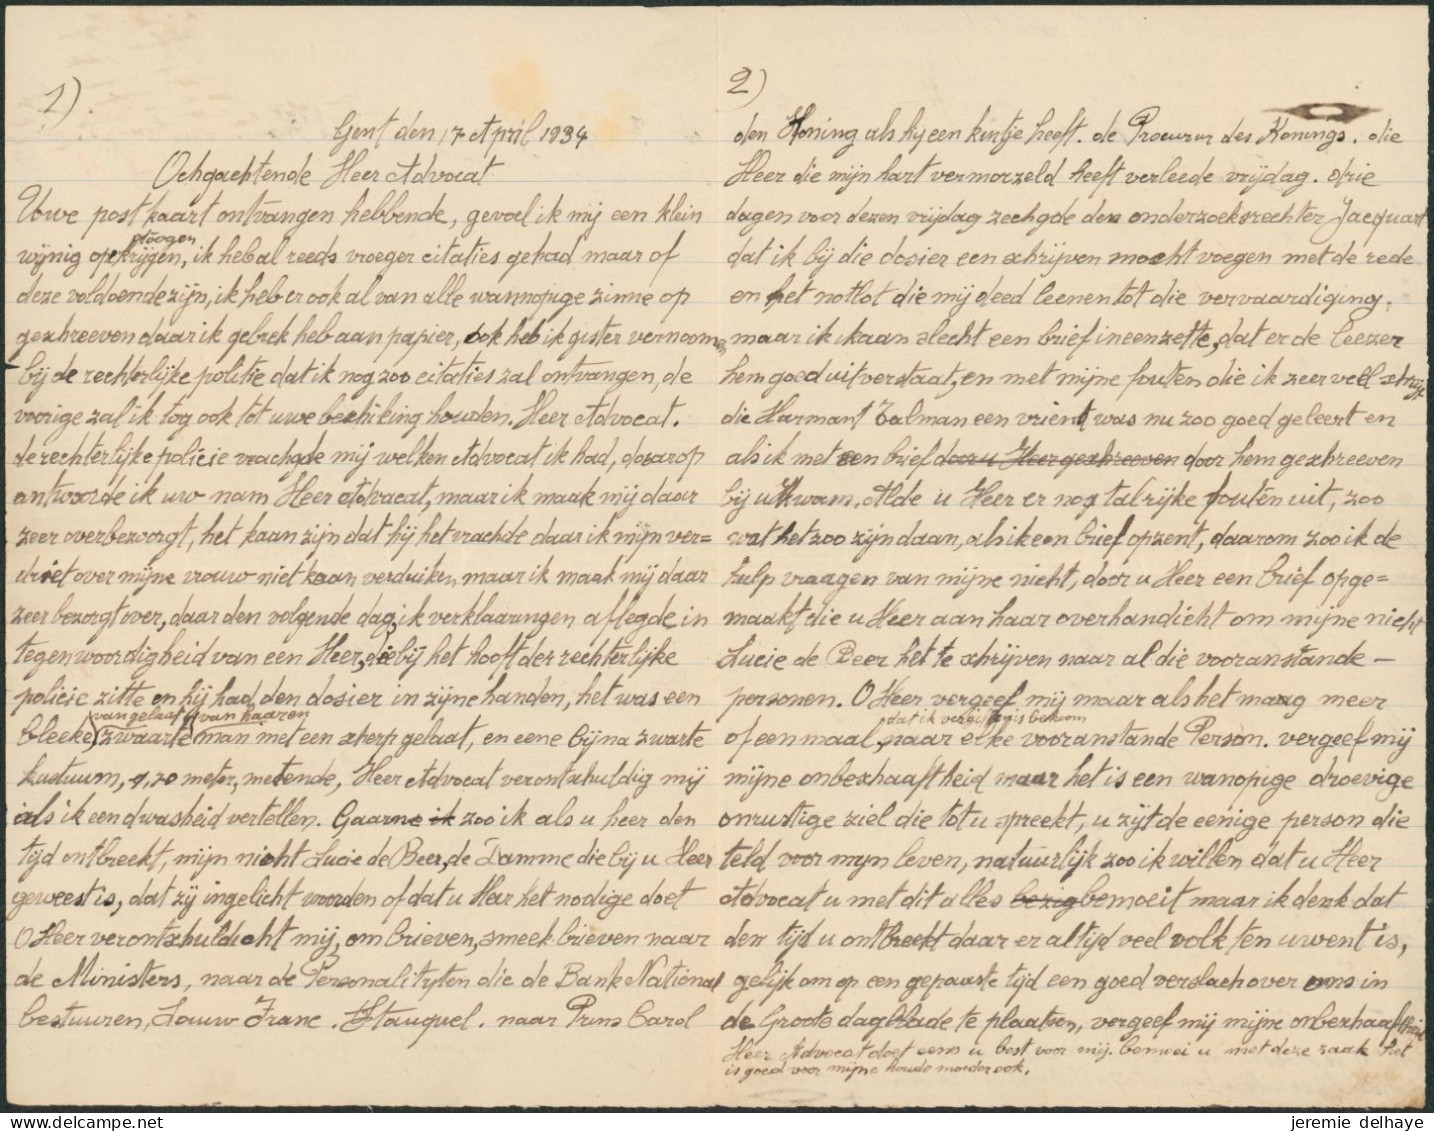 1).
Gent den 17 April 1934
Ochgachtende Heer Advocat
Uwe postkaart ontvangen hebbende, gevoel ik mij een klein
ploogen
wijnig opkrijgen, ik heb al reeds vroeger citaties gehad maar of
deze voldoende zijn, ik heb er ook al van alle wannopige zinne op
geschreeven daar ik gebrek heb aan papier, ook heb ik gister vernoomen
bij de rechterlijke politie dat ik nog zoo citaties zal ontvangen, de
voorige zal ik tog ook tot uwe beschiking houden. Heer Advocat.
de rechterlijke policie vrachgde mij welken Advocat ik had, daarop
antwoorde ik uw nam Heer Advocat, maar ik maak mij daar
zeer overbezorgt, het kaan zijn dat hij het vrachde daar ik mijn ver=
driet over mijne vrouw niet kaan verduiken maar ik maak mij daar
zeer bezorgt over, daar den volgende dag, ik verklaaringen aflegde in
tegenwoordigheid van een Heer, die bij het hooft der rechterlijke
policie zitte en hij had den dosier in zijne handen, het was een
van gelaat van haaren
bleeke zwaarte man met een scherp gelaat, en eene bijna zwarte
kustuum, 1,70 meter, metende, Heer Advocat verontschuldig mij
als ik een dwasheid vertellen. Gaarne ik zoo ik als u heer den
tijd ontbreekt, mijn nicht Lucie de Beer, de Damme die bij u Heer
geweest is, dat zij ingelicht woorden of dat u Heer het nodige doet
O Heer verontschuldicht mij, om brieven, smeek brieven naar
de Ministers, naar de Personalityten die de Bank National
bestuuren, Louw Franc. Stauquel. naar Prins Carol
2)
den Koning als hij een kintje heeft. de Procurur des Konings. die
Heer die mijn hart vermorzeld heeft verleede vrijdag. drie
dagen voor dezen vrijdag zechgde den onderzoeksrechter Jacquart
dat ik bij die dosier een schrijven mocht voegen met de rede
en het notlot die mij deed leenen tot die vervaardiging.
maar ik kaan slecht een brief ineenzette, dat er de leezer
hem goed uit verstaat, en met mijne fouten die ik zeer veel schrijf
die Harmant Talman een vrient was nu zoo goed geleert en
als ik met een brief door u Heer geschreeven door hem geschreeven
bij u kwam, Alde u Heer er nog talrijke fouten uit, zoo
wat het zoo zijn daan, als ik een brief opzent, daarom zoo ik de
hulp vraagen van mijne nicht, door u Heer een brief opge=
maakt die u Heer aan haar overhandicht om mijne nicht
Lucie de Beer het te schrijven naar al die vooranstande —
personen. O Heer vergeef mij maar als het maag meer
dat ik verbijtenis bekom
of een maal, naar elke vooranstande Person. vergeef mij
mijne onbeschaaftheid maar het is een wanopige droevige
onrustige ziel die tot u spreekt, u zijt de eenige person die
teld voor mijn leven, natuurlijk zoo ik willen dat u Heer
Advocat u met dit alles bezig bemoeit maar ik denk dat
den tijd u ontbreekt daar er altijd veel volk ten uwent is,
gelijk om op een gepaaste tijd een goed verslach over ons in
de Groote dagblade te plaatsen, vergeef mij mijne onbeschaaftheid
Heer Advocat doet eens u best voor mij. bemoei u met deze zaak het
is goed voor mijne houde moeder ook.
jeremie delhaye